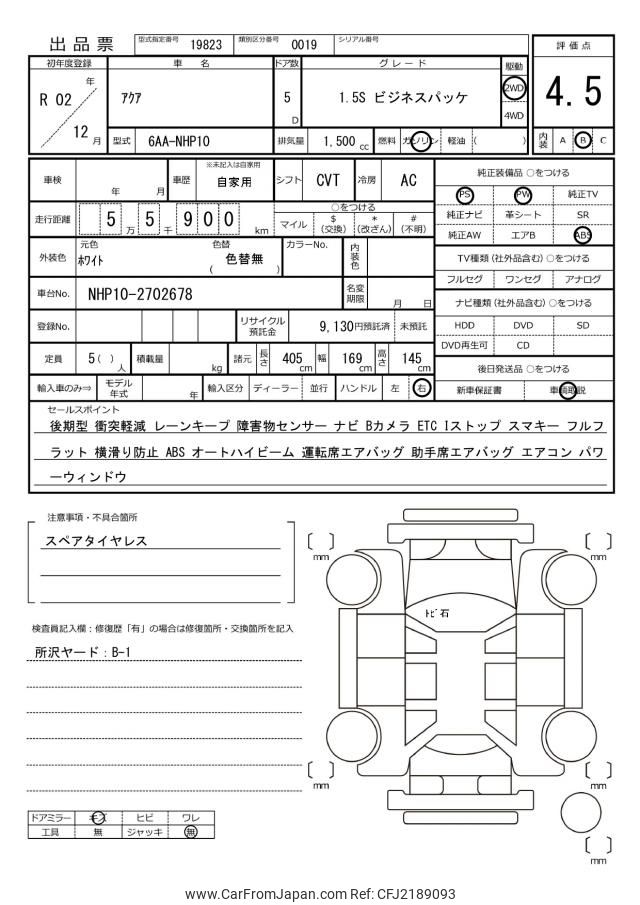 出品票 型式指定番号 19823 類別区分番号 0019 シリアル番号
評価点
4.5
内装 A B C
初年度登録 車名 ドア数 グレード 駆動
R 02 年 12 月
ｱｸｱ 5 D 1.5S ビジネスパッケ 2WD 4WD
型式 6AA-NHP10 排気量 1,500 cc 燃料 ガソリン 軽油 ( )
車検 年 月 車歴 ※未記入は自家用 自家用 シフト CVT 冷房 AC
走行距離 5 万 5 千 9 0 0 km
○をつける
マイル $(交換) *(改ざん) #(不明)
外装色 元色 ﾎﾜｲﾄ 色替 ( 色替無 ) カラーNo. 内装色
車台No. NHP10-2702678 名変期限 月 日
登録No. リサイクル預託金 9,130円預託済 未預託
定員 5( ) 人 積載量 kg 諸元 長さ 405 cm 幅 169 cm 高さ 145 cm
輸入車のみ⇒ モデル年式 年 輸入区分 ディーラー 並行 ハンドル 左 右
純正装備品 ○をつける
PS PW 純正TV
純正ナビ 革シート SR
純正AW エアB ABS
TV種類(社外品含む)○をつける
フルセグ ワンセグ アナログ
ナビ種類(社外品含む)○をつける
HDD DVD SD
DVD再生可 CD
後日発送品 ○をつける
新車保証書 車輌取説
セールスポイント
後期型 衝突軽減 レーンキープ 障害物センサー ナビ Bカメラ ETC Iストップ スマキー フルフ
ラット 横滑り防止 ABS オートハイビーム 運転席エアバッグ 助手席エアバッグ エアコン パワ
ーウィンドウ
注意事項・不具合箇所
スペアタイヤレス
検査員記入欄：修復歴「有」の場合は修復箇所・交換箇所を記入
所沢ヤード：B-1
ドアミラー キズ ヒビ ワレ
工具 無 ジャッキ 無
mm
mm
ﾄﾋﾞ石
mm
mm
mm
www.CarFromJapan.com Ref: CFJ2189093